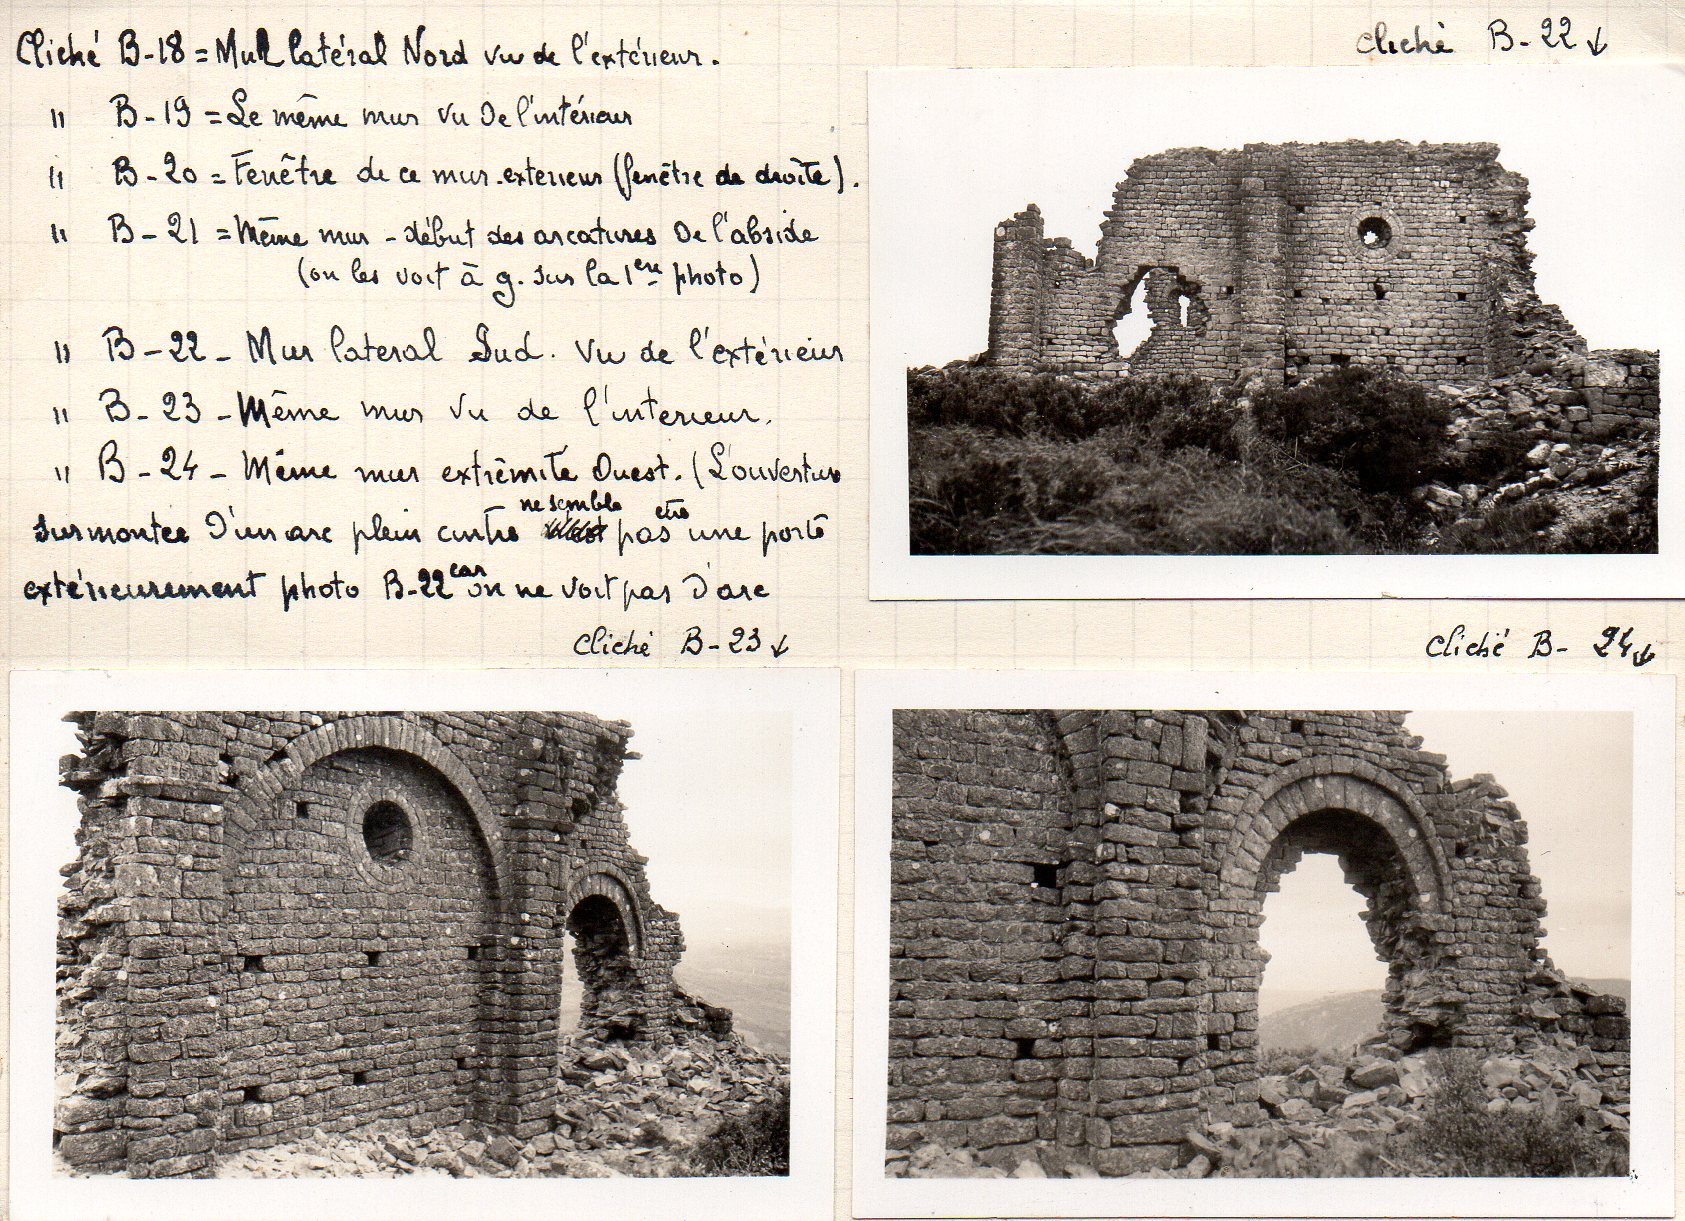 Cliché B-18 = Mur latéral Nord vu de l'extérieur.
" B-19 = Le même mur vu de l'intérieur
" B-20 = Fenêtre de ce mur-exterieur (fenêtre de droite).
" B-21 = Même mur - début des arcatures de l'abside
(on les voit à g. sur la 1ere photo)
" B-22 - Mur lateral Sud. Vu de l'extérieur
" B-23 - Même mur vu de l'interieur.
" B-24 - Même mur extrêmité Ouest. (L'ouverture
surmontée d'un arc plein cintre ne semble pas être une porte
extérieurement photo B-22 car on ne voit pas d'arc
Cliché B-22 ↓
Cliché B-23 ↓
Cliché B-24 ↓